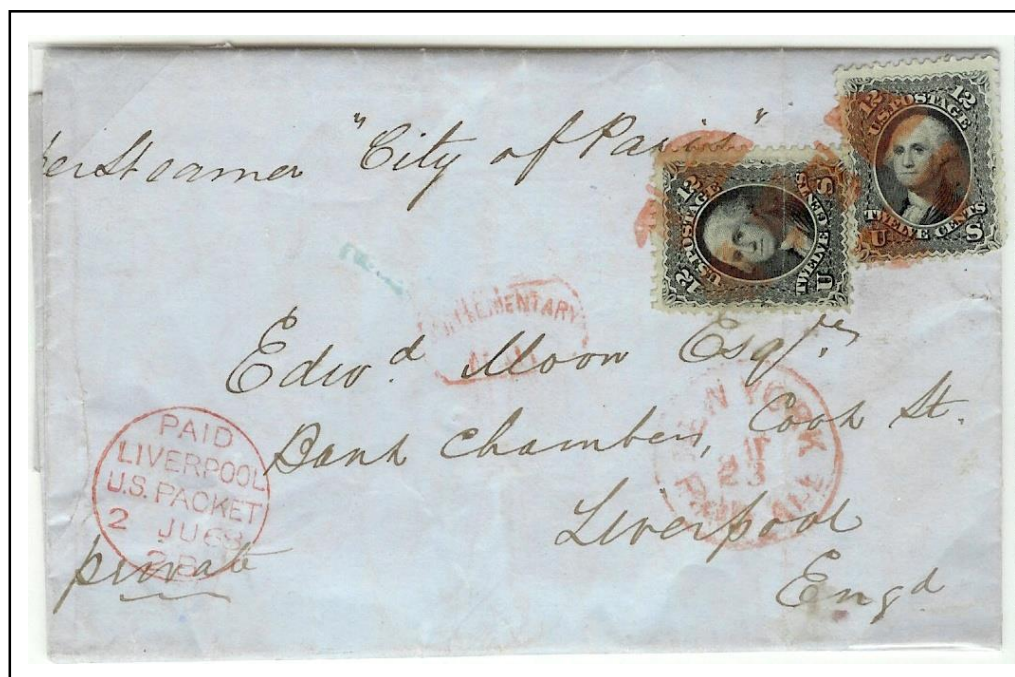 per Steamer "City of Paris"
12 U.S. POSTAGE 12
TWELVE CENTS.
U S
12 U.S. POSTAGE 12
TWELVE CENTS
U S
SUPPLEMENTARY
Edwd. Moon Esqre
Bank Chambers, Cook St.
Liverpool
Engd
NEW YORK
23
PAID ALL
PAID
LIVERPOOL
U.S. PACKET
2 JU 68
2 B
private